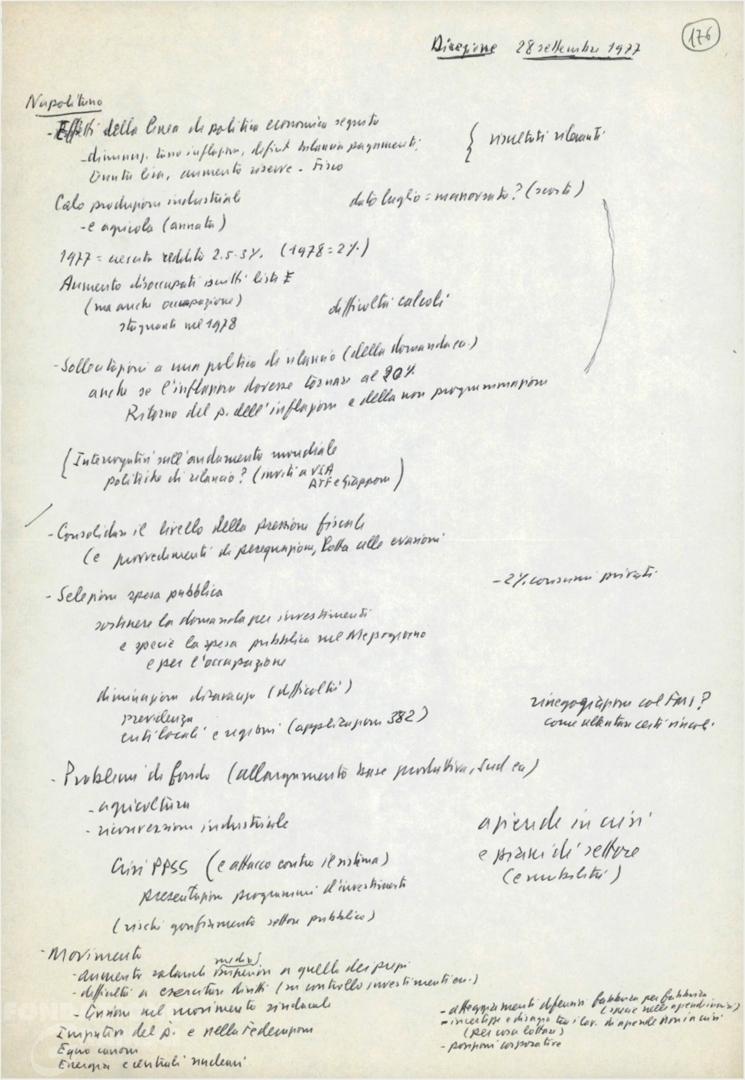 176
Direzione 28 settembre 1977
Napolitano
- Effetti della linea di politica economica seguita
- diminuz. tasso inflazione, deficit bilancia pagamenti;
tenuta lira, aumento riserve - Fisco
{ risultati rilevanti
Calo produzione industriale
dato luglio = manovrato? (scorte)
- e agricola (annata)
1977 = crescita reddito 2.5-3% (1978 = 2%)
Aumento disoccupati iscritti liste
(ma anche occupazione)
stagnante nel 1978
difficoltà calcoli
- Sollecitazioni a una politica di rilancio (della domanda ecc.)
anche se l'inflazione dovesse tornare al 20%
Ritorno del p. dell'inflazione e della non programmazione
{ Interrogativi sull'andamento mondiale
politiche di rilancio? (inviti a USA
RFT e Giappone)
- Consolidare il livello della pressione fiscale
(e provvedimenti di perequazione, lotta alle evasioni
- Selezione spesa pubblica
- 2% consumi privati
sostenere la domanda per investimenti
e specie la spesa pubblica nel Mezzogiorno
e per l'occupazione
diminuzione disavanzo (difficoltà)
previdenza
enti locali e regioni (applicazione 382)
rinegoziazione col FMI?
come allentare certi vincoli
- Problemi di fondo (allargamento base produttiva, Sud ecc)
- agricoltura
- riconversione industriale
aziende in crisi
e piani di settore
(e mobilità)
Crisi PPSS (e attacco contro il sistema)
presentazione programmi d'investimenti
(rischi gonfiamento settore pubblico)
- Movimento
- aumento salari medi superiori a quello dei prezzi
- difficoltà a esercitare diritti (su controllo investimenti ecc.)
- tensioni nel movimento sindacale
- atteggiamenti difensivi fabbrica per fabbrica
(specie nelle aziende in crisi)
- incertezze e disagio tra i lav. di aziende non in crisi
(per cosa lottare)
- posizioni corporative
Iniziativa del p. e nella Federazione
Equo canone
Energia e centrali nucleari